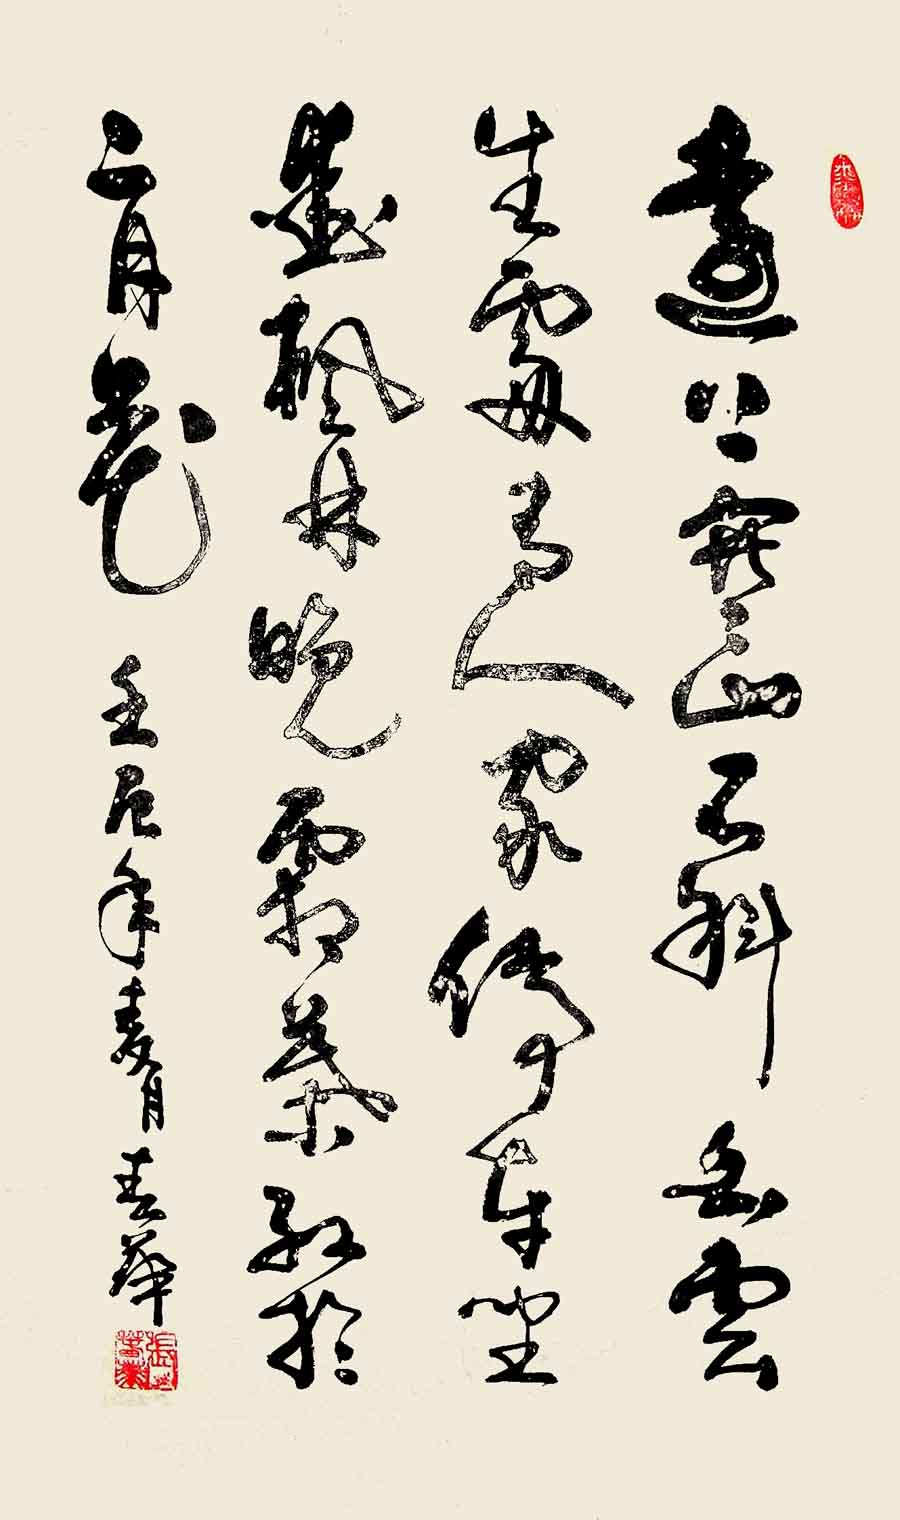 遠上寒山石斜白雲
生處有人家停車坐
愛楓林晚霜葉紅於
二月花 壬辰年夏月春華